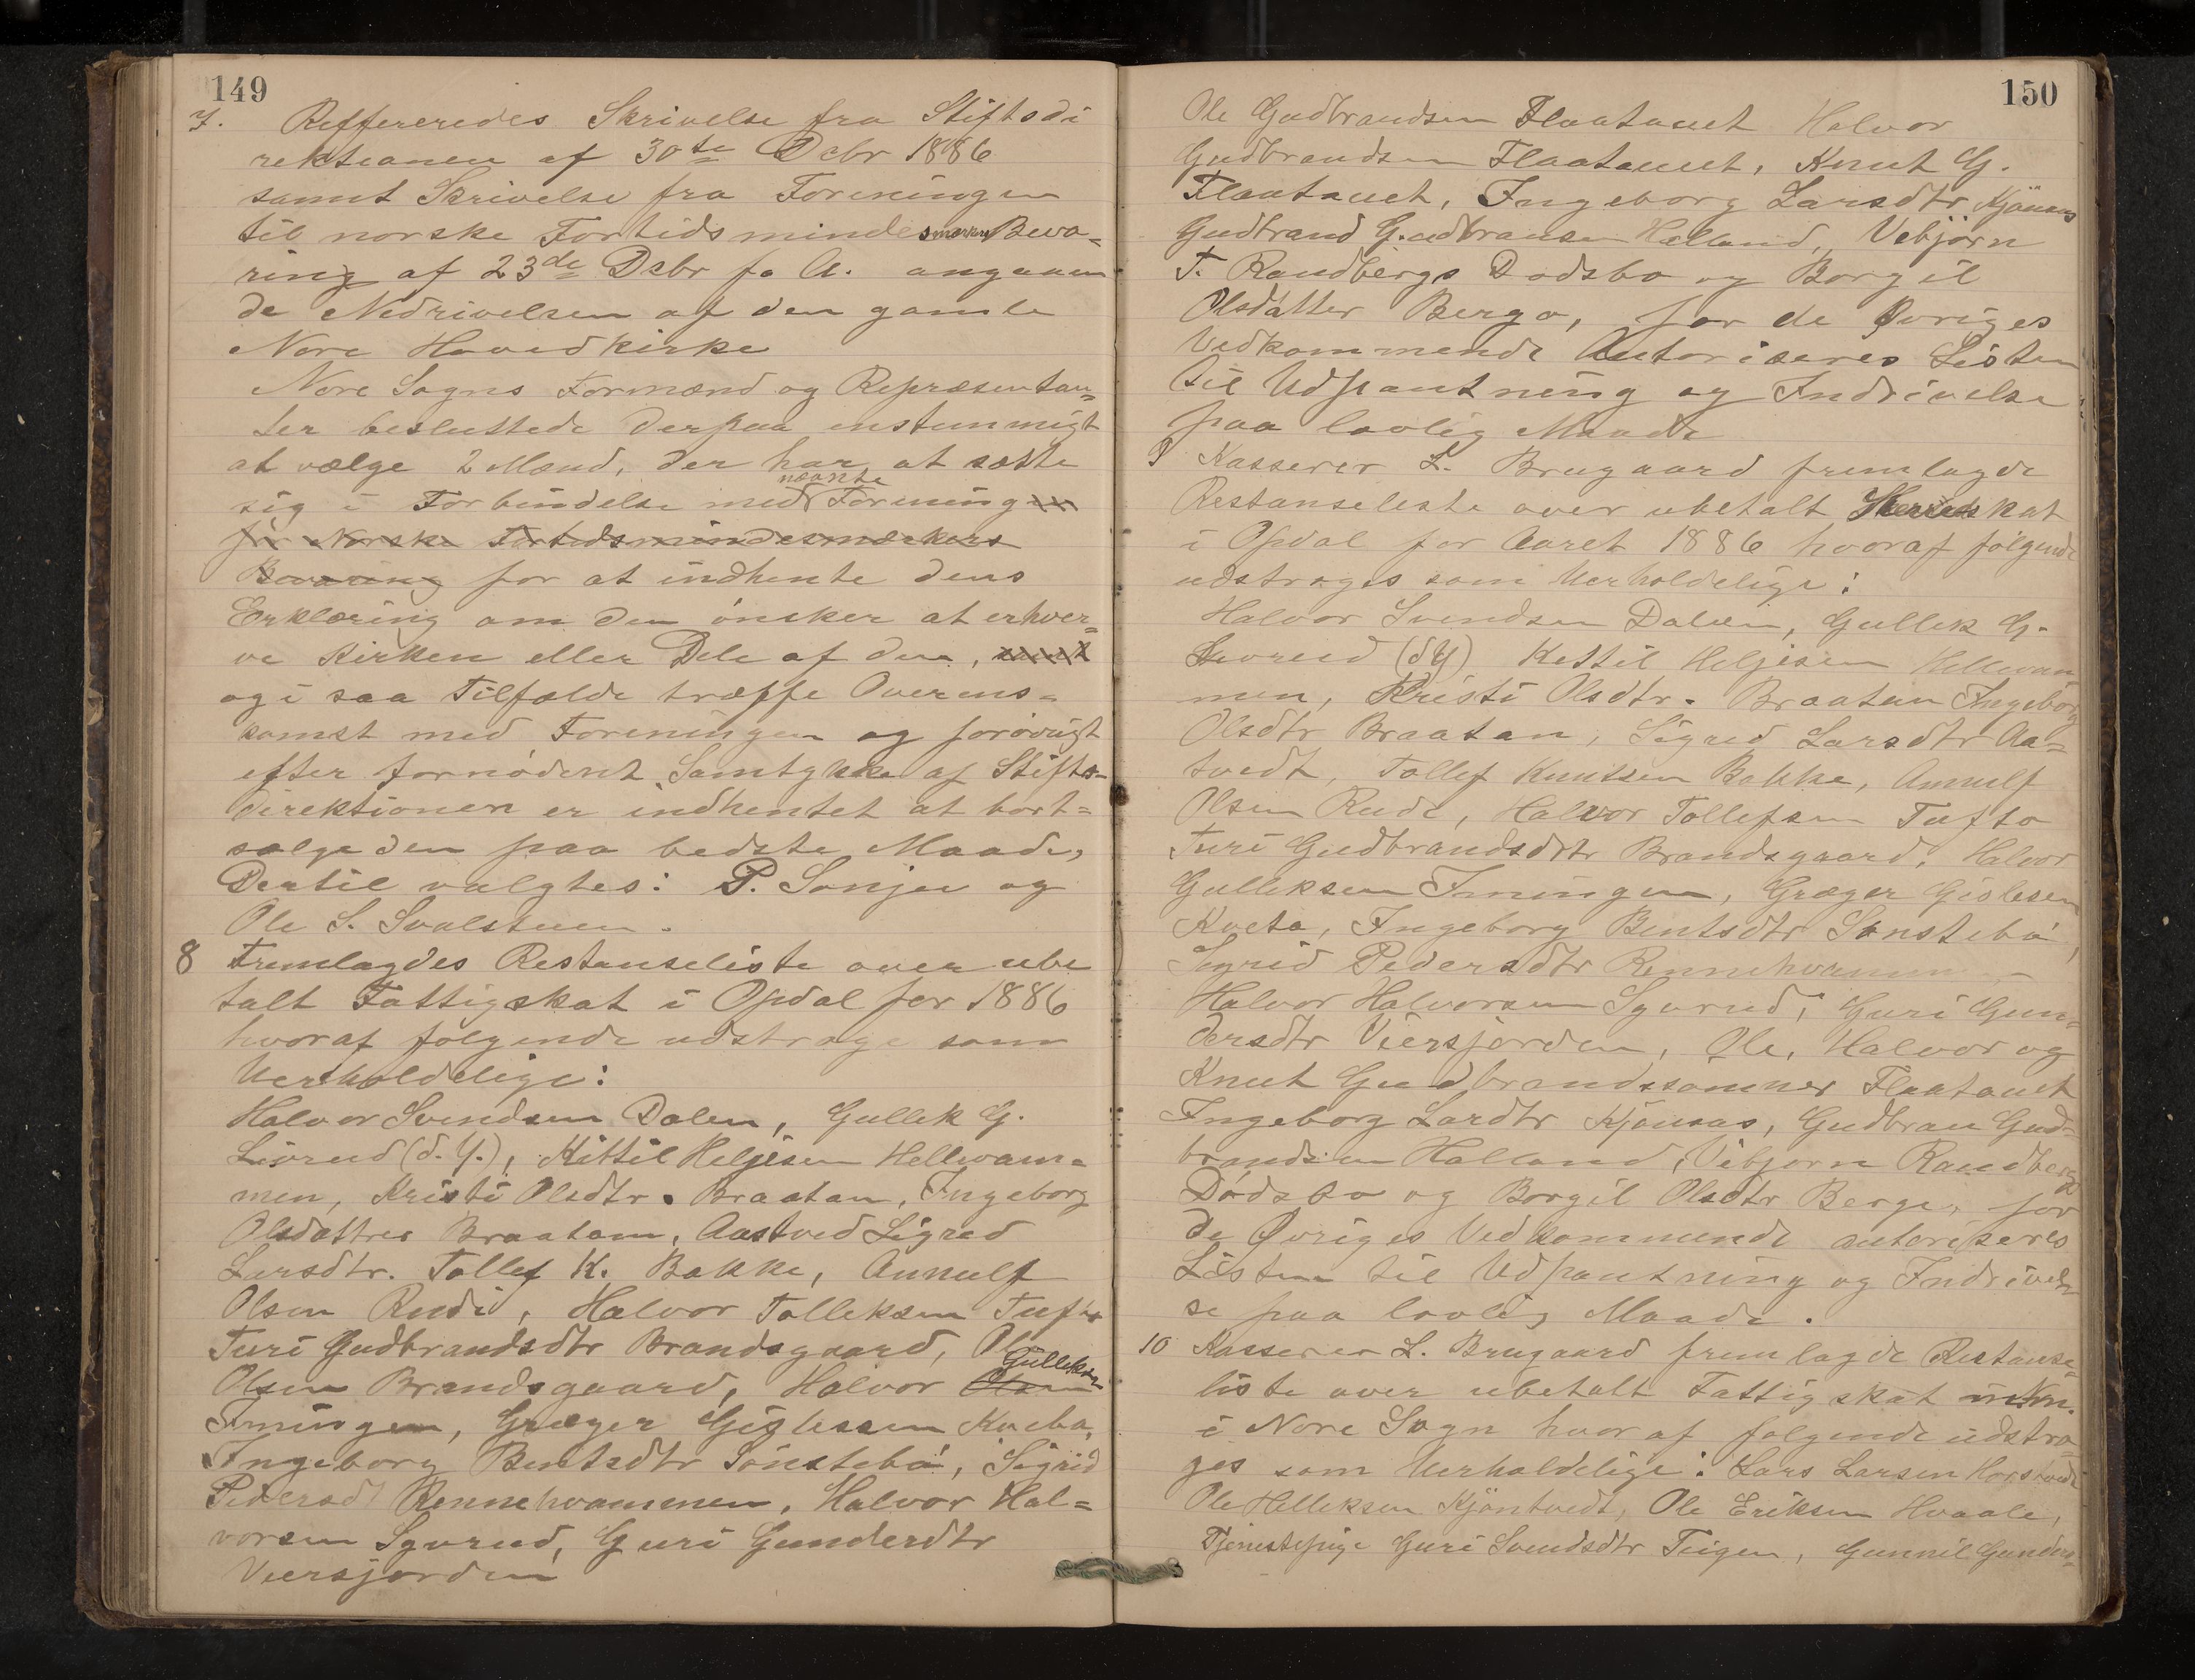 149
7. Reffereredes Skrivelse fra Stiftsdi
rektionen af 30te Debr 1886
samt Skrivelse fra Foreningen
til norske Fortidsmindesmærkers Beva-
ring af 23de Dsbr f. A. angaaen
de Nedrivelsen af den gamle
Nore Hovedkirke
Nore Sogns Formænd og Repræsentan-
ter besluttede derpaa enstemmigt
at vælge 2 Mænd, der har at sætte
sig i Forbindelse med nævnte Foreningen
for Norske Fortidsmindesmærkers
Bevaring for at indhente dens
Erklæring om den ønsker at erhver-
ve Kirken eller Dele af den, samt
og i saa Tilfælde træffe Overens-
komst med Foreningen og forøvrigt
efter fornødent Samtykke af Stifts-
direktionen er indhentet at bort-
sælge den paa bedste Maade,
Dertil valgtes: P. Sønjer og
Ole S. Svalsteen.
8 Fremlagdes Restanseliste over ube
talt Fattigskat i Opdal for 1886
hvoraf følgende udstroge som
Uerholdelige:
Halvor Svendsen Dalen, Gullek G.
Livrud (d.Y.), Kittil Heljesen Hellevam-
men, Kristi Olsdtr. Braatan, Ingeborg
Olsdatter Braatan, Aastved Sigred
Larsdtr. Tollef K. Bakke, Annulf
Olsen Rudi, Halvor Tolleksen Tufto
Turi Gudbrandsdtr Brandsgaard, Ole
Olsen Brandsgaard, Halvor Olsen Gulleksen
Imingen, Græger Gislessen Kveta,
Ingeborg Bentsdtr Sønstebø, Sigrid
Pedersd Rennehvammen, Halvor Hal-
vorsen Sgvrud, Guri Gunderdtr
Viersjorden
150
Ole Gudbrandsen Flaatauet Halvor
Gudbrandsen Flaatauet, Knut G.
Flaatauet, Ingeborg Larsdtr Kjønaas
Gudbrand Gudbransen Halland, Vebjørn
T. Raudbergs Dødsbo og Borgil
Olsdatter Berge, for de Øvriges
Vedkommende Autoriseres Listen
til Udpantning og Inddrivelse
paa lovlig Maade
9 Kasserer L. Brugaard fremlagde
Restanseliste over ubetalt Herredskat
i Opdal for Aaret 1886 hvoraf følgende
udstroges som Uerholdelige:
Halvor Svendsen Dalen, Gullek G.
Livrud (d Y) Kettil Heljesen Hellevam
men, Kristi Olsdtr. Braatan Ingeborg
Olsdtr Braatan, Sigred Larsdtr Aa-
stvedt, Tollef Knutsen Bakke, Annulf
Olsen Rudi, Halvor Tollefsen Tufto
Turi Gudbrandsdtr Brandsgaard, Halvor
Gulleksen Imingen, Græger Gislesen
Kveta, Ingeborg Bentsdtr Sønstebø,
Sigrid Pedersdtr Rennehvammen
Halvor Halvorsen Sgvrud, Guri Gun-
dersdtr Viersjorden, Ole, Halvor og
Knut Gudbrandssønner Flaatauet
Ingeborg Lardtr Kjønaas, Gudbran Gud-
brandsen Halland, Vibjørn Raudbergs
Dødsbo og Borgil Olsdtr Berge, for
de Øvriges Vedkommende autoriseres
Listen til Udpantning og Inddrivel-
se paa lovlig Maade.
10 Kasserer L. Brugaard fremlagde Restanse-
liste over ubetalt Fattigskat
i Nore Sogn hvoraf følgende udstro
ges som Uerholdelige: Lars Larsen Horstvedt
Ole Helleksen Kjøntvedt, Ole Eriksen Hvaale,
Tjenestepige Guri Svendsdtr Teigen, Gunnil Gunders-